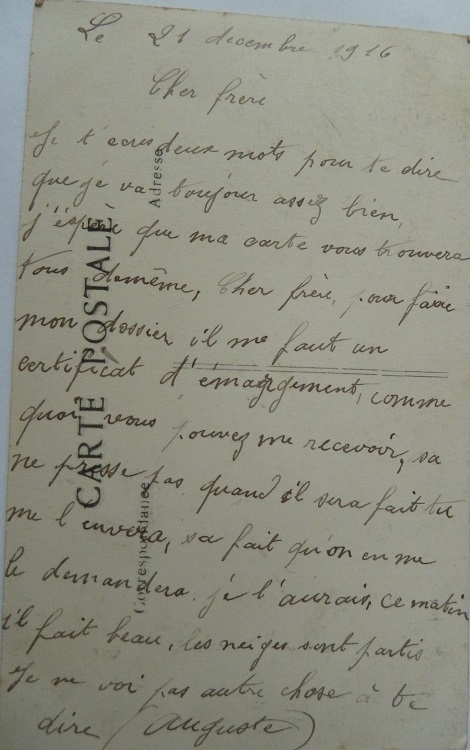 Le 21 decembre 1916
Cher frère
Je t'ecris deux mots pour te dire
que je va toujour assez bien,
j'éspère que ma carte vous trouvera
tous demême, Cher frère, pour faire
mon dossier il me faut un
certificat d'émargement, comme
quoi vous pouvez me recevoir, sa
ne presse pas quand il sera fait tu
me l'envera, sa fait qu'on en me
le demandera je l'aurais, ce matin
il fait beau, les neiges sont partis
Je ne voi pas autre chose à te
dire (Auguste)
CARTE POSTALE
Correspondance
Adresse